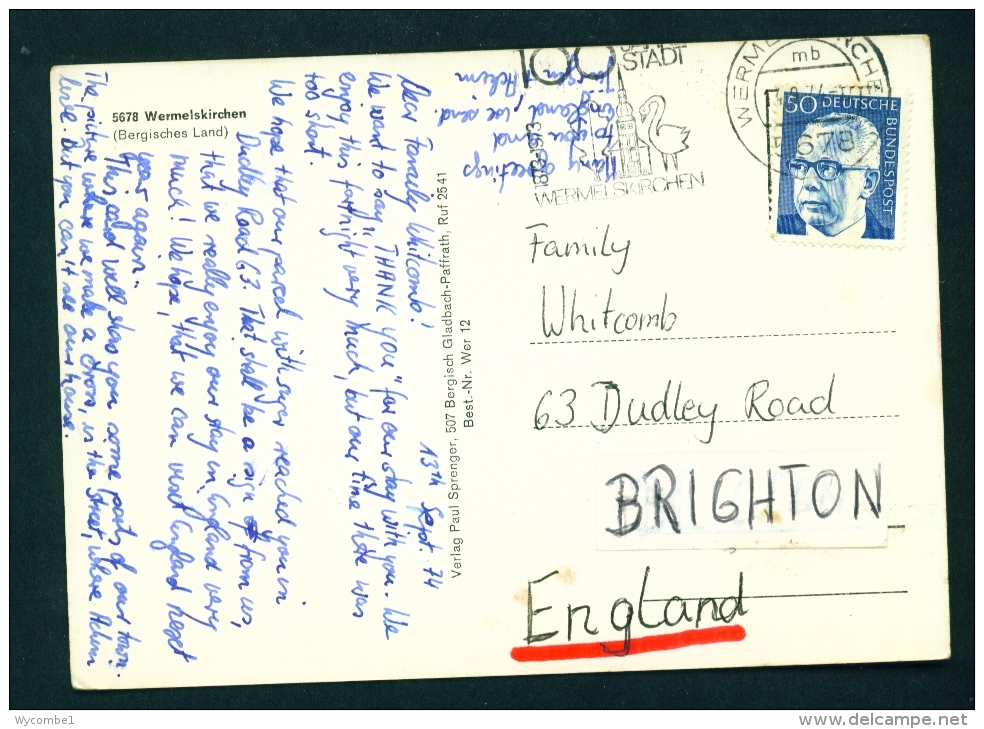 5678 Wermelskirchen
(Bergisches Land)
13th Sept. 74
Dear Family Whitcomb!
We want to say "THANK YOU" for our stay with you. We
enjoy this fortnight very much, but our time there was
too short.
We hope that our parcel with sugar reached you in
Dudley Road 63. That shall be a sign from us,
that we really enjoy our stay in England very
much! We hope, that we can visit England next
year again.
This card will show you some parts of our town.
The picture where we make a cross, is the street, where Achim
lives. But you can't see our house.
Many greetings
to you and
England, we send
Jürgen + Achim
Verlag Paul Sprenger, 507 Bergisch Gladbach-Paffrath, Ruf 2541
Best.-Nr. Wer 12
100
STADT
1873-1973
WERMELSKIRCHEN
mb
5678
50 DEUTSCHE
BUNDESPOST
Family
Whitcomb
63 Dudley Road
BRIGHTON
England
Wycombe1
http://www.delcampe.net